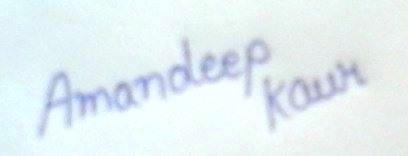 Amandeep
Kaur